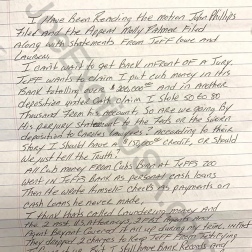 I Have been Reading the motion John Phillips
Filed and the Appeal Molly Palmer Filed
Along with statements from Jeff Lowe and
Lauren.
I can't wait to get Back infront of A Jury.
Jeff wants to claim I put cub money in His
Bank totalling over $200,000 and in another
deposition under oath claim I stole 50 to 80
thousand from His account. So are we going by
His perjury statement to the Feds or the sworn
deposition to Carole's lawyers? According to their
story I should Have a $150,000 credit, or should
we just tell the truth?
All Cub money from cubs born at Jeff's Zoo
went in Jeff's Bank as personal cash loans
then He wrote Himself checks as payments on
cash loans He never made.
I think that's called laundering money and
the 2 US Attorneys
Agent Bryant covered it all up during my trial,
they dropped 2 charges to Keep
I still have Bank Records and